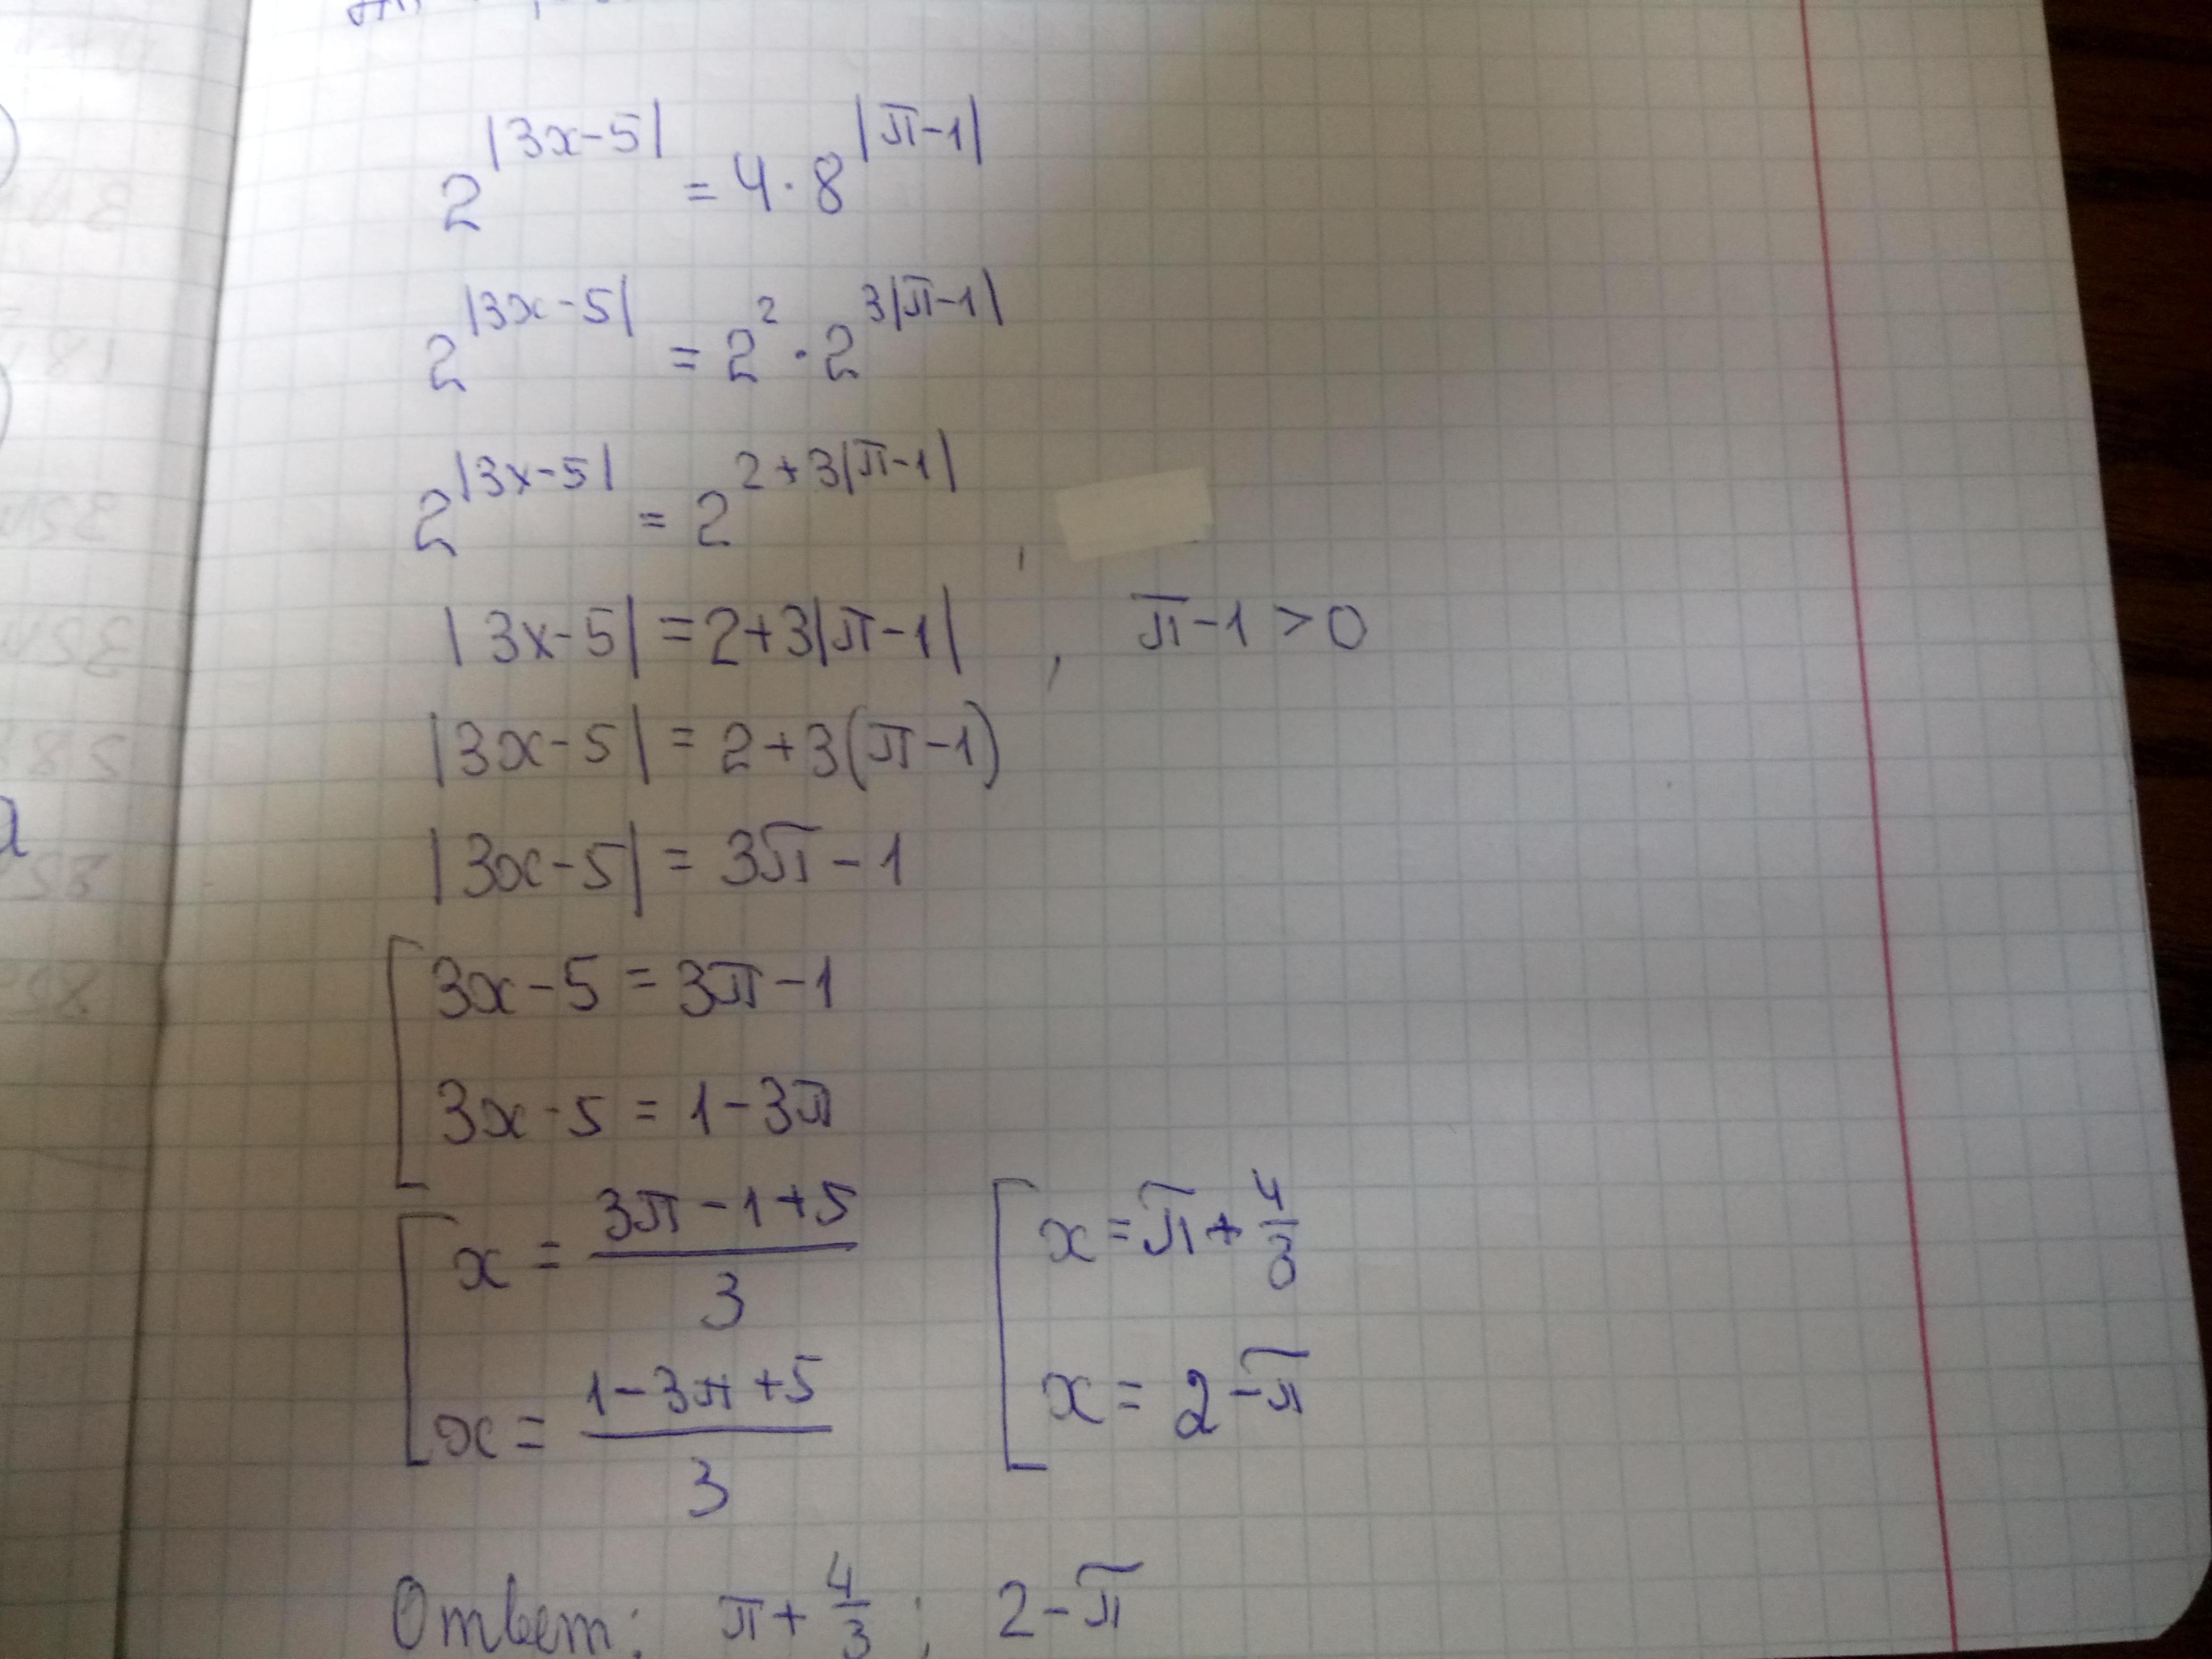 2^|3x-5| = 4·8^|π-1|
2^|3x-5| = 2^2 · 2^3|π-1|
2^|3x-5| = 2^2+3|π-1|
|3x-5| = 2+3|π-1| , π-1 > 0
|3x-5| = 2+3(π-1)
|3x-5| = 3π-1
[ 3x-5 = 3π-1
3x-5 = 1-3π
[ x = (3π-1+5)/3
x = (1-3π+5)/3
[ x = π + 4/3
x = 2-π
Ответ: π + 4/3 ; 2-π